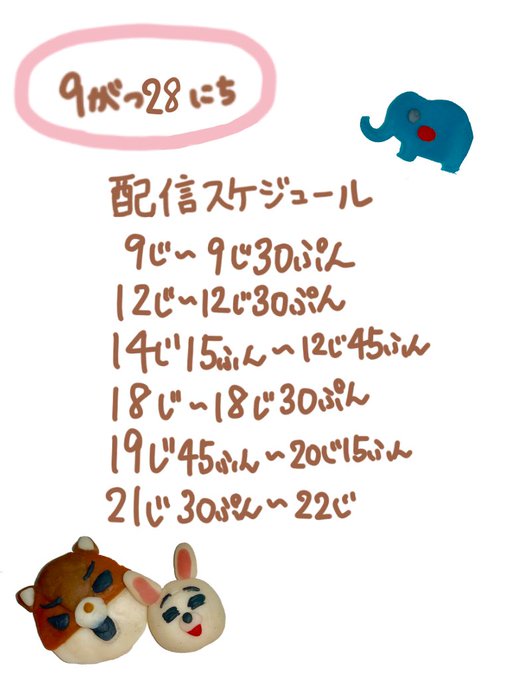 9がつ28にち
配信スケジュール
9じ〜9じ30ぷん
12じ〜12じ30ぷん
14じ15ふん〜12じ45ふん
18じ〜18じ30ぷん
19じ45ふん〜20じ15ふん
21じ30ぷん〜22じ